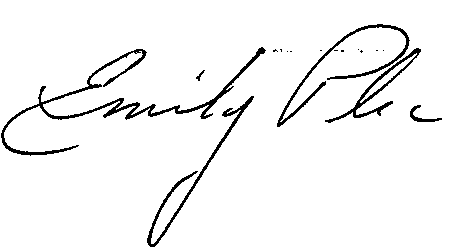 Emily Plec